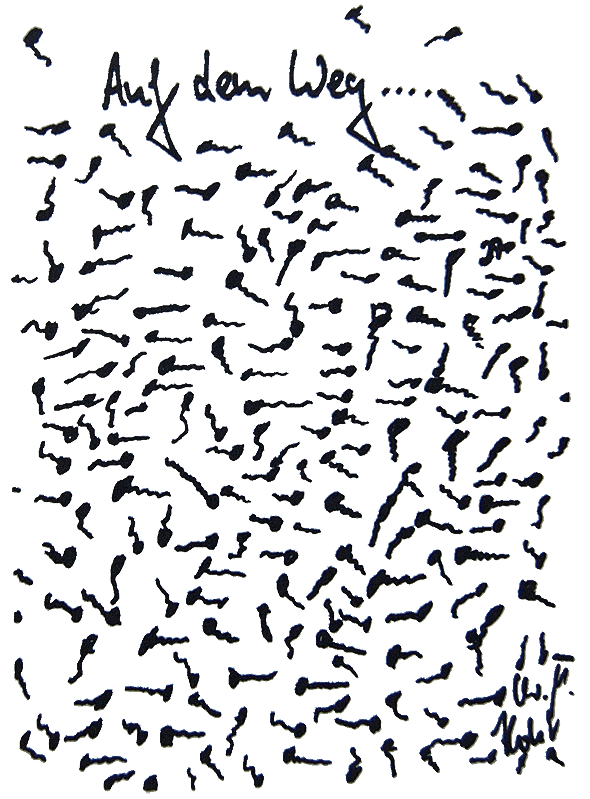 Auf dem Weg.....